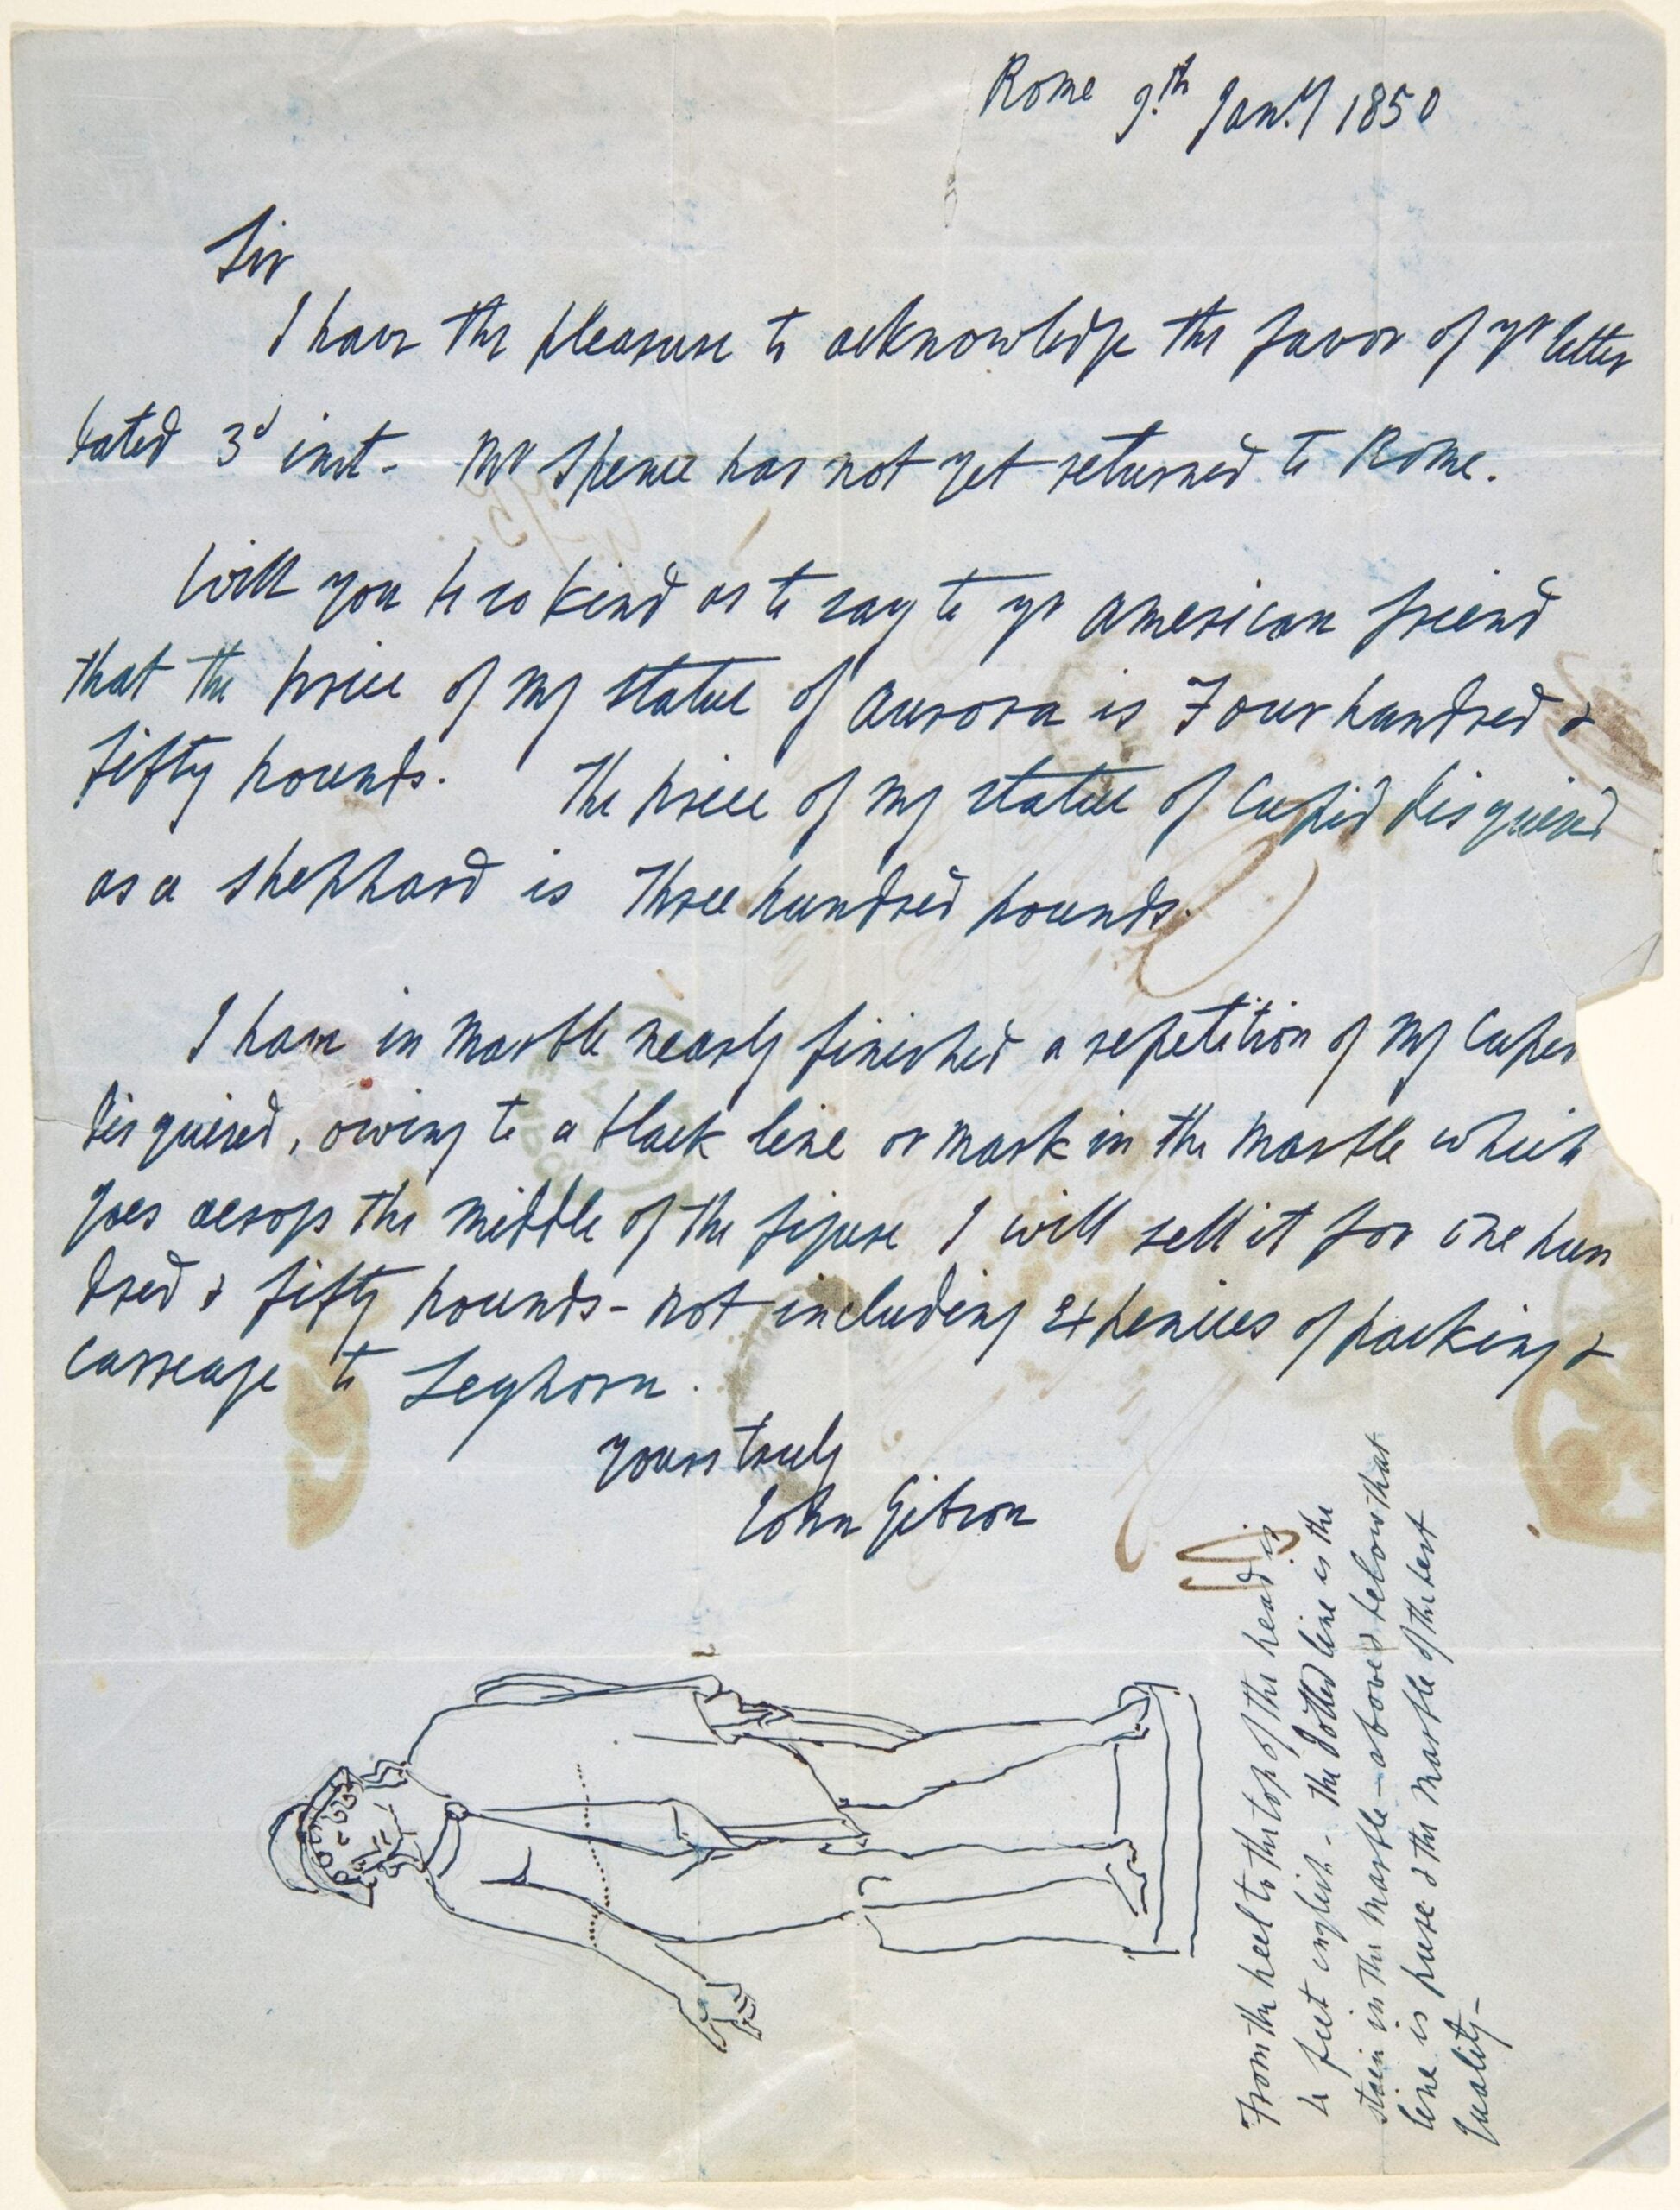 Rome 9.th Jan.y 1850
Sir
I have the pleasure to acknowledge the favor of yr letter
dated 3d inst. Mr Spence has not yet returned to Rome.
Will you be so kind as to say to yr American friend
that the price of my statue of Aurora is Four hundred &
fifty pounds. The price of my statue of Cupid disguised
as a shephard is Three hundred pounds.
I have in marble nearly finished a repetition of my Cupid
disguised, owing to a black line or mark in the marble which
goes across the middle of the figure I will sell it for one hun
dred & fifty pounds - not including expences of packing &
carreage to Leghorn.
yours truly
John Gibson
From the heel to the top of the head is
4 feet english - the dotted line is the
stain in the marble - above & below that
line is pure & the marble of the best
quality -